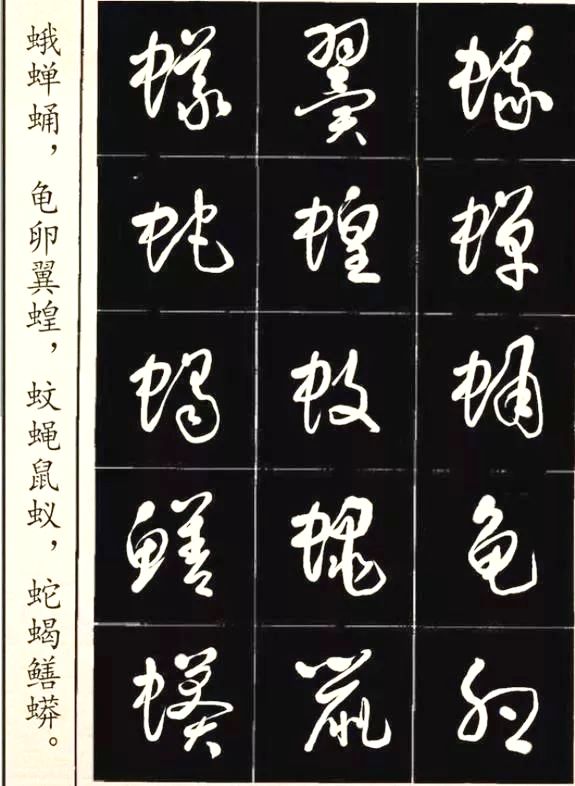 蛾蝉蛹，龟卵翼蝗，蚊蝇鼠蚁，蛇蝎鳝蟒。
蛾蝉蛹龟卵
翼蝗蚊蝇鼠
蚁蛇蝎鳝蟒